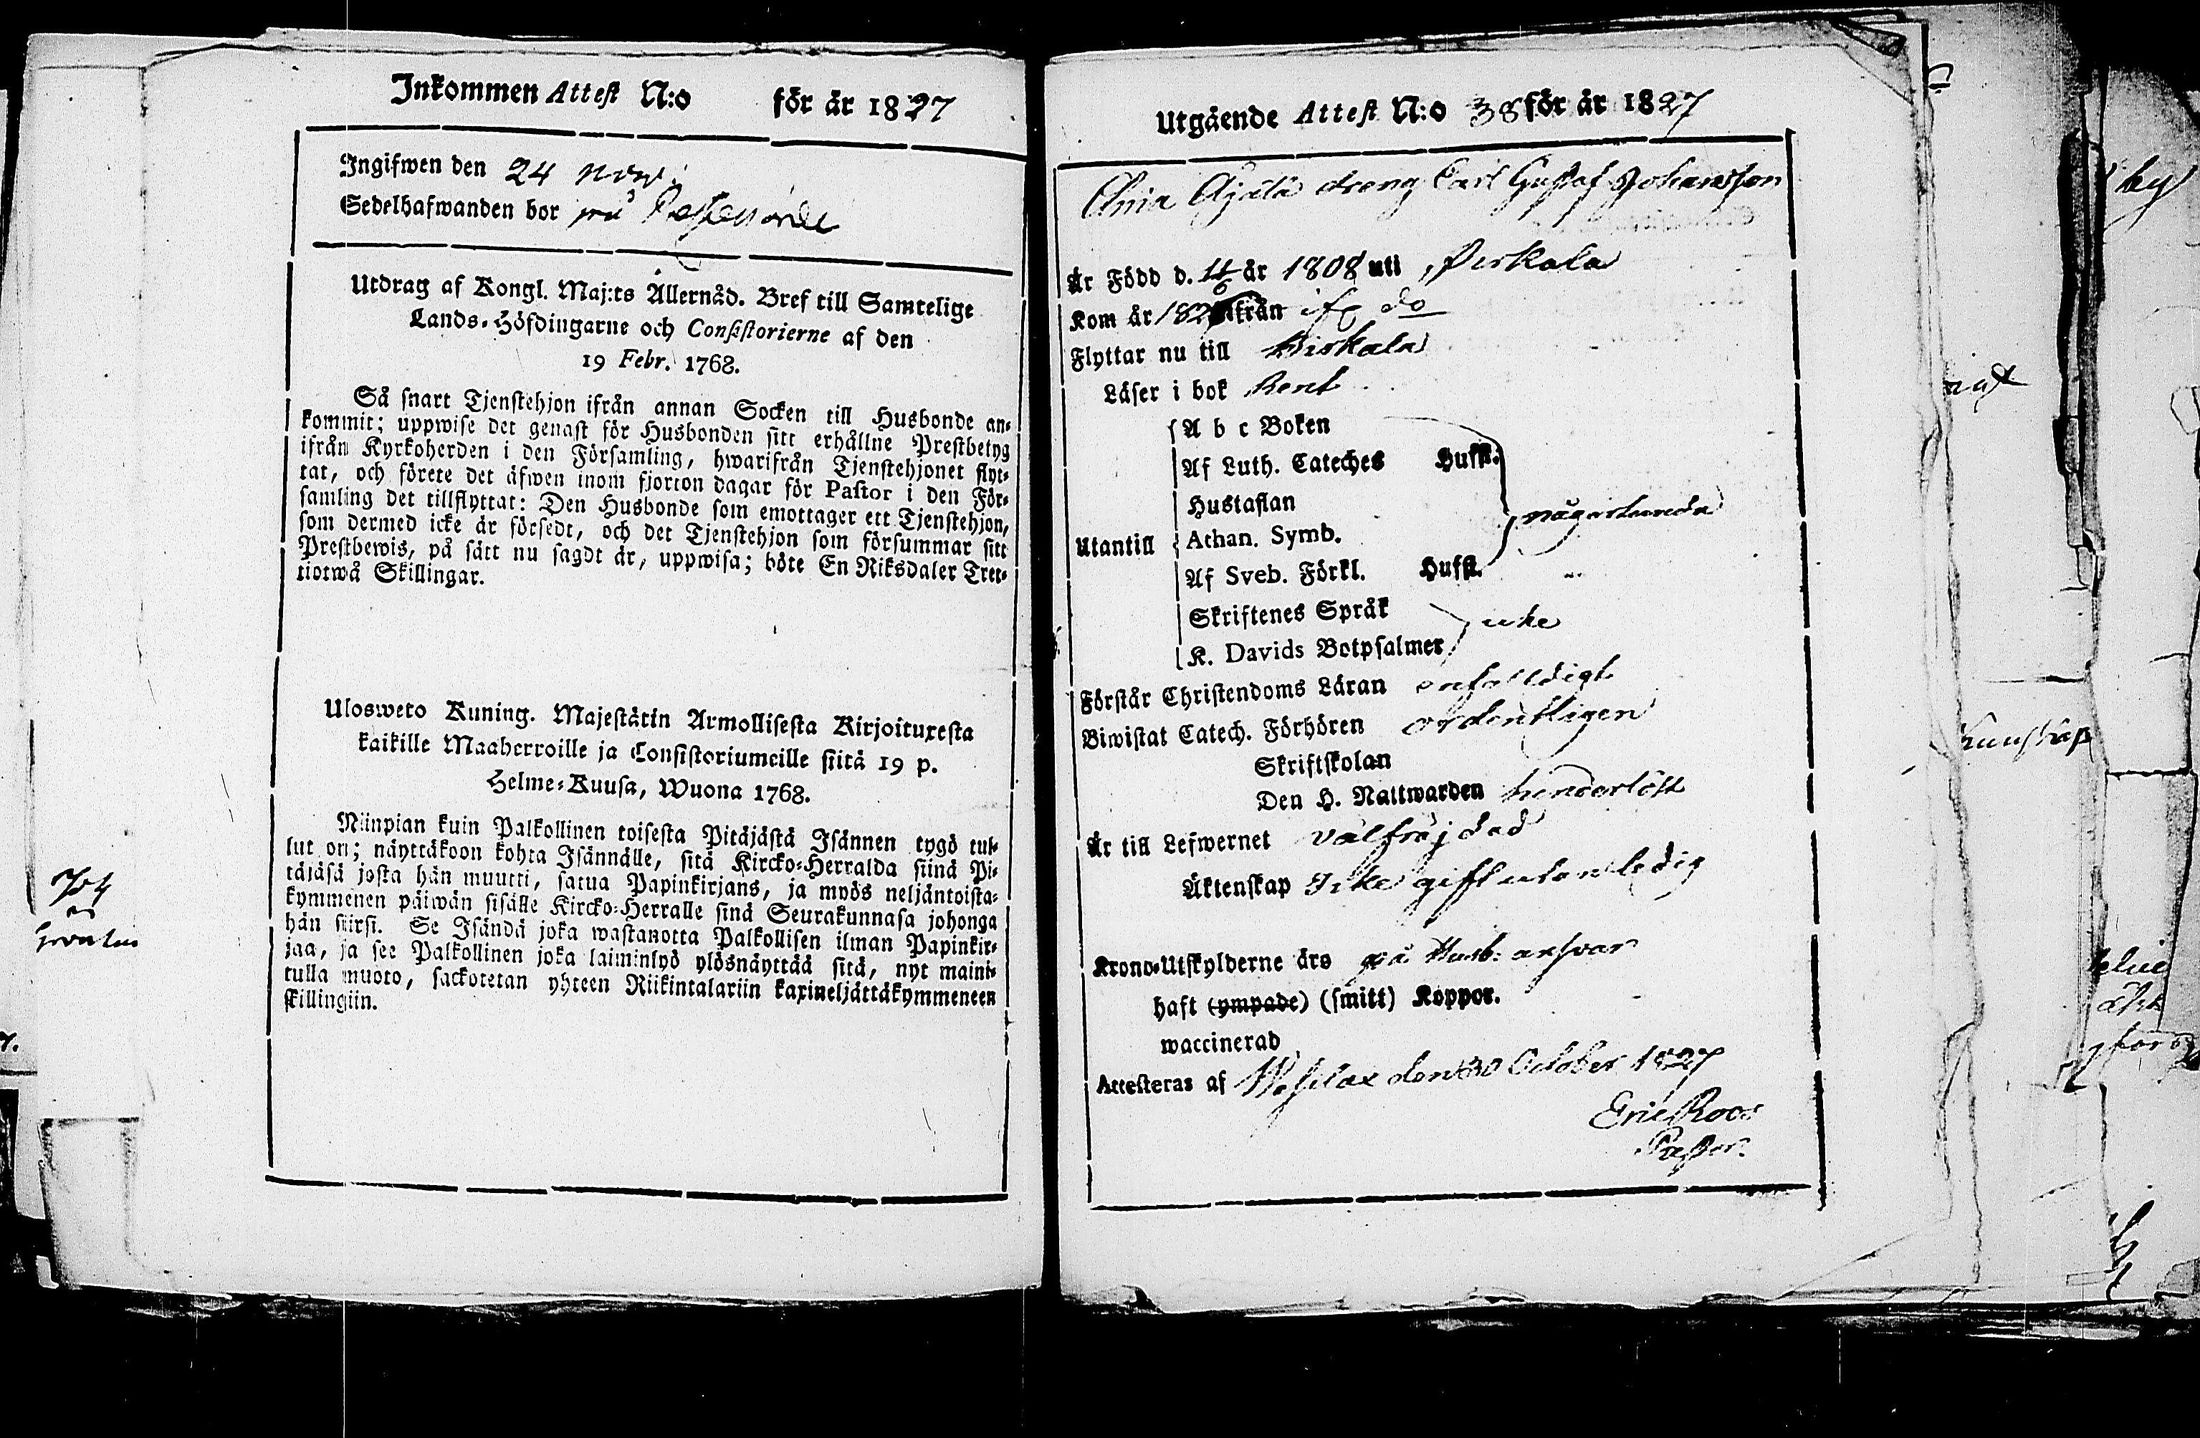 Inkommen Attest N:o för år 1827
Ingifwen den 24 Nov:
Sedelhafwanden bor på
Utdrag af Kongl. Maj:ts Allernåd. Bref till Samtelige
Lands-Höfdingarne och Consistorierne af den
19 Febr. 1768.
Så snart Tjenstehjon ifrån annan Socken till Husbonde an-
kommit; uppwise det genast för Husbonden sitt erhållne Prestbetyg
ifrån Kyrkoherden i den Församling, hwarifrån Tjenstehjonet flyt-
tat, och förete det äfwen inom fjorton dagar för Pastor i den För-
samling det tillflyttat: Den Husbonde som emottager ett Tjenstehjon,
som dermed icke är försedt, och det Tjenstehjon som försummar sitt
Prestbewis, på sätt nu sagdt är, uppwisa; böte En Riksdaler Tret-
tiotwå Skillingar.
Ulosweto Kuning. Majestätin Armollisesta Kirjoituxesta
kaikille Maaherroille ja Consistoriumeille siitä 19 p.
Helme-Kuusa, Wuona 1768.
Niinpian kuin Palkollinen toisesta Pitäjästä Isännen tygö tul-
lut on; näyttäkoon kohta Isännälle, sitä Kircko-Herralda siinä Pi-
täjäsä josta hän muutti, satua Papinkirjans, ja myös neljäntoista-
kymmenen päiwän sisälle Kircko-Herralle sinä Seurakunnasa johonga
hän siirsi. Se Isändä joka wastanotta Palkollisen ilman Papinkir-
jaa, ja see Palkollinen joka laiminlyö ylösnäyttää sitä, nyt maini-
tulla muoto, sackotetan yhteen Riikintalariin kaxineljättäkymmeneen
skillingiin.
Utgående Attest N:o 38 för år 1827
dreng Carl Gustaf Johansson
Är Född d. år 1808 uti Pirkala
Kom år 182 ifrån do
Flyttar nu till Birkala
Läser i bok Rent
A b c Boken
Af Luth. Cateches Hufst.
Hustaflan
någorlunda
Utantill Athan. Symb.
Af Sveb. Förkl. Hufst.
Skriftenes Språk
icke
K. Davids Botpsalmer
Förstår Christendoms Läran enfaldigt
Biwistat Catech. Förhören ordentligen
Skriftskolan
Den H. Nattwarden hinderlöst
Är till Lefwernet välfräjdad
Äktenskap Icke gift utan ledig
Krono-Utskylderne äro på Husb: answar
haft (ympade) (smitt) Koppor.
waccinerad
Attesteras af den 30 October 1827
Eric Roos
Pastor.
704
Kunskap